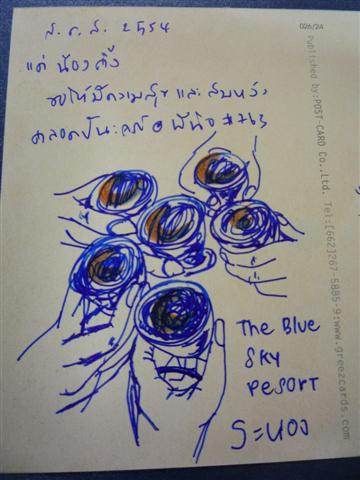 ส.ค.ส. 2554
แด่ น้องกิ้ง
ขอให้มีความสุข และ สมหวัง
ตลอดปีนะ
The Blue
Sky
resort
ระนอง
026/24
Published by:POST-CARD Co.,Ltd. Tel:[662]267-5885-9:www.greezcards.com